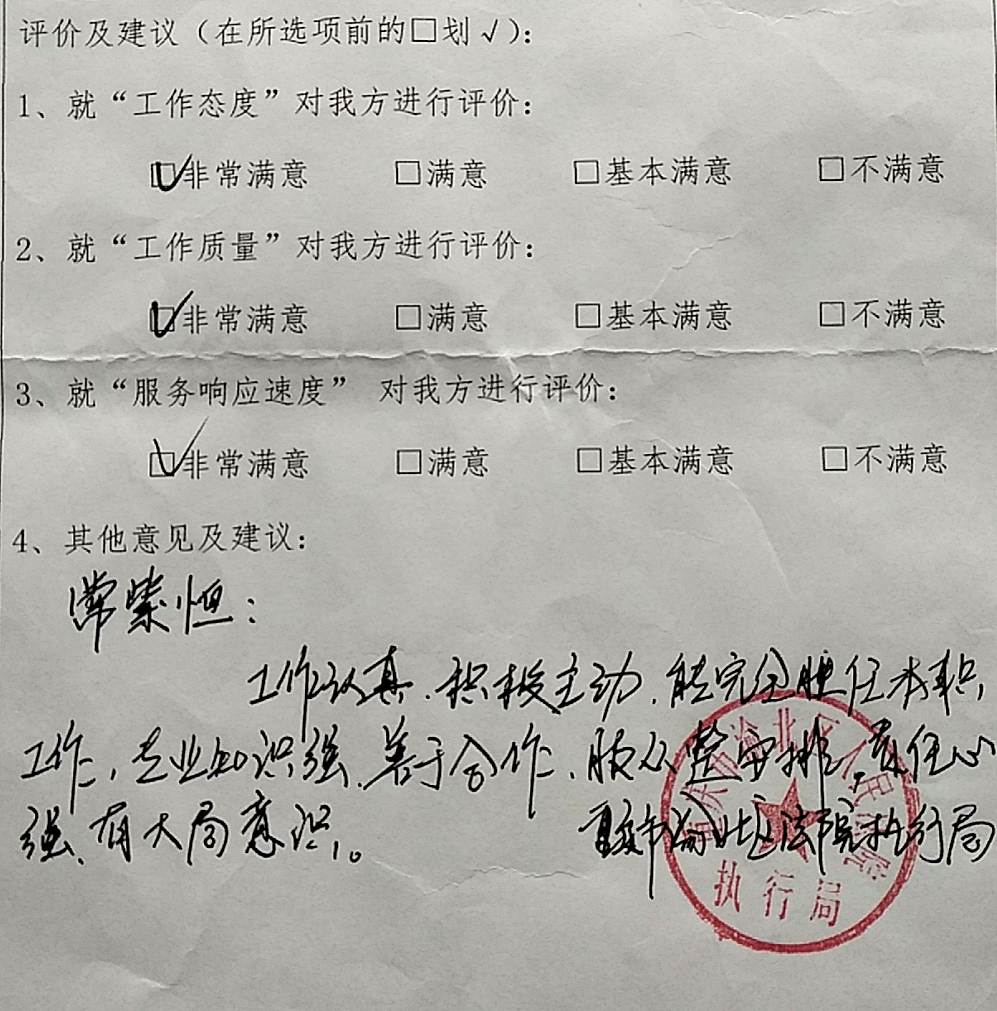 评价及建议（在所选项前的□划√）：
1、就“工作态度”对我方进行评价：
☑非常满意 □满意 □基本满意 □不满意
2、就“工作质量”对我方进行评价：
☑非常满意 □满意 □基本满意 □不满意
3、就“服务响应速度” 对我方进行评价：
☑非常满意 □满意 □基本满意 □不满意
4、其他意见及建议：
常紫恒：
工作认真、积极主动、能完全胜任本职
工作，专业知识强、善于合作、服从整安排，责任心
强、有大局意识。 重庆市渝北区法院执行局
重庆市渝北区人民法院
执行局